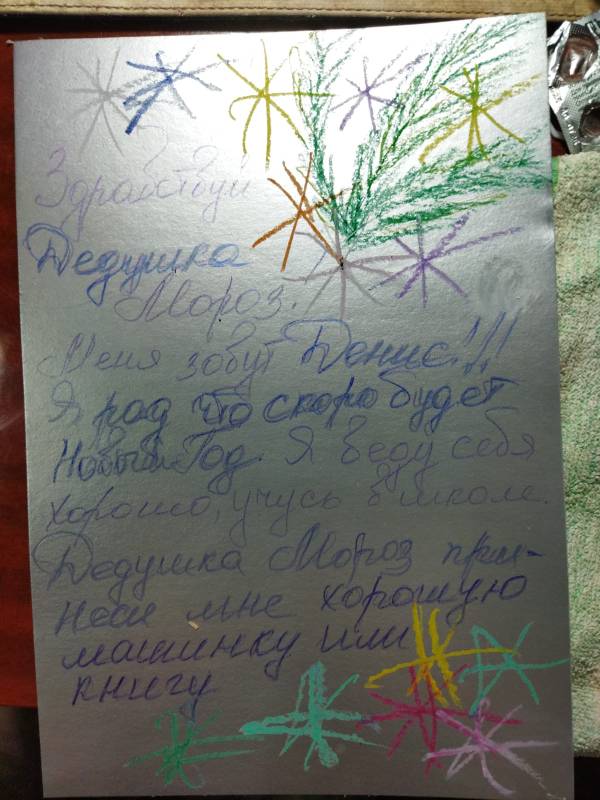 Здравствуй
Дедушка
Мороз.
Меня зовут Денис!!!
Я рад что скоро будет
Новый Год. Я веду себя
хорошо, учусь в школе.
Дедушка Мороз при-
неси мне хорошую
машинку или
книгу